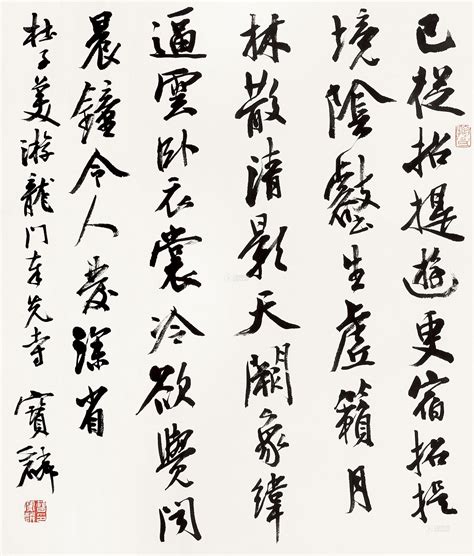 已從招提遊更宿招提
境陰壑生虛籟月
林散清影天闕象緯
逼雲卧衣裳冷欲覺聞
晨鐘令人發深省
杜子美游龍門奉先寺 寶麟